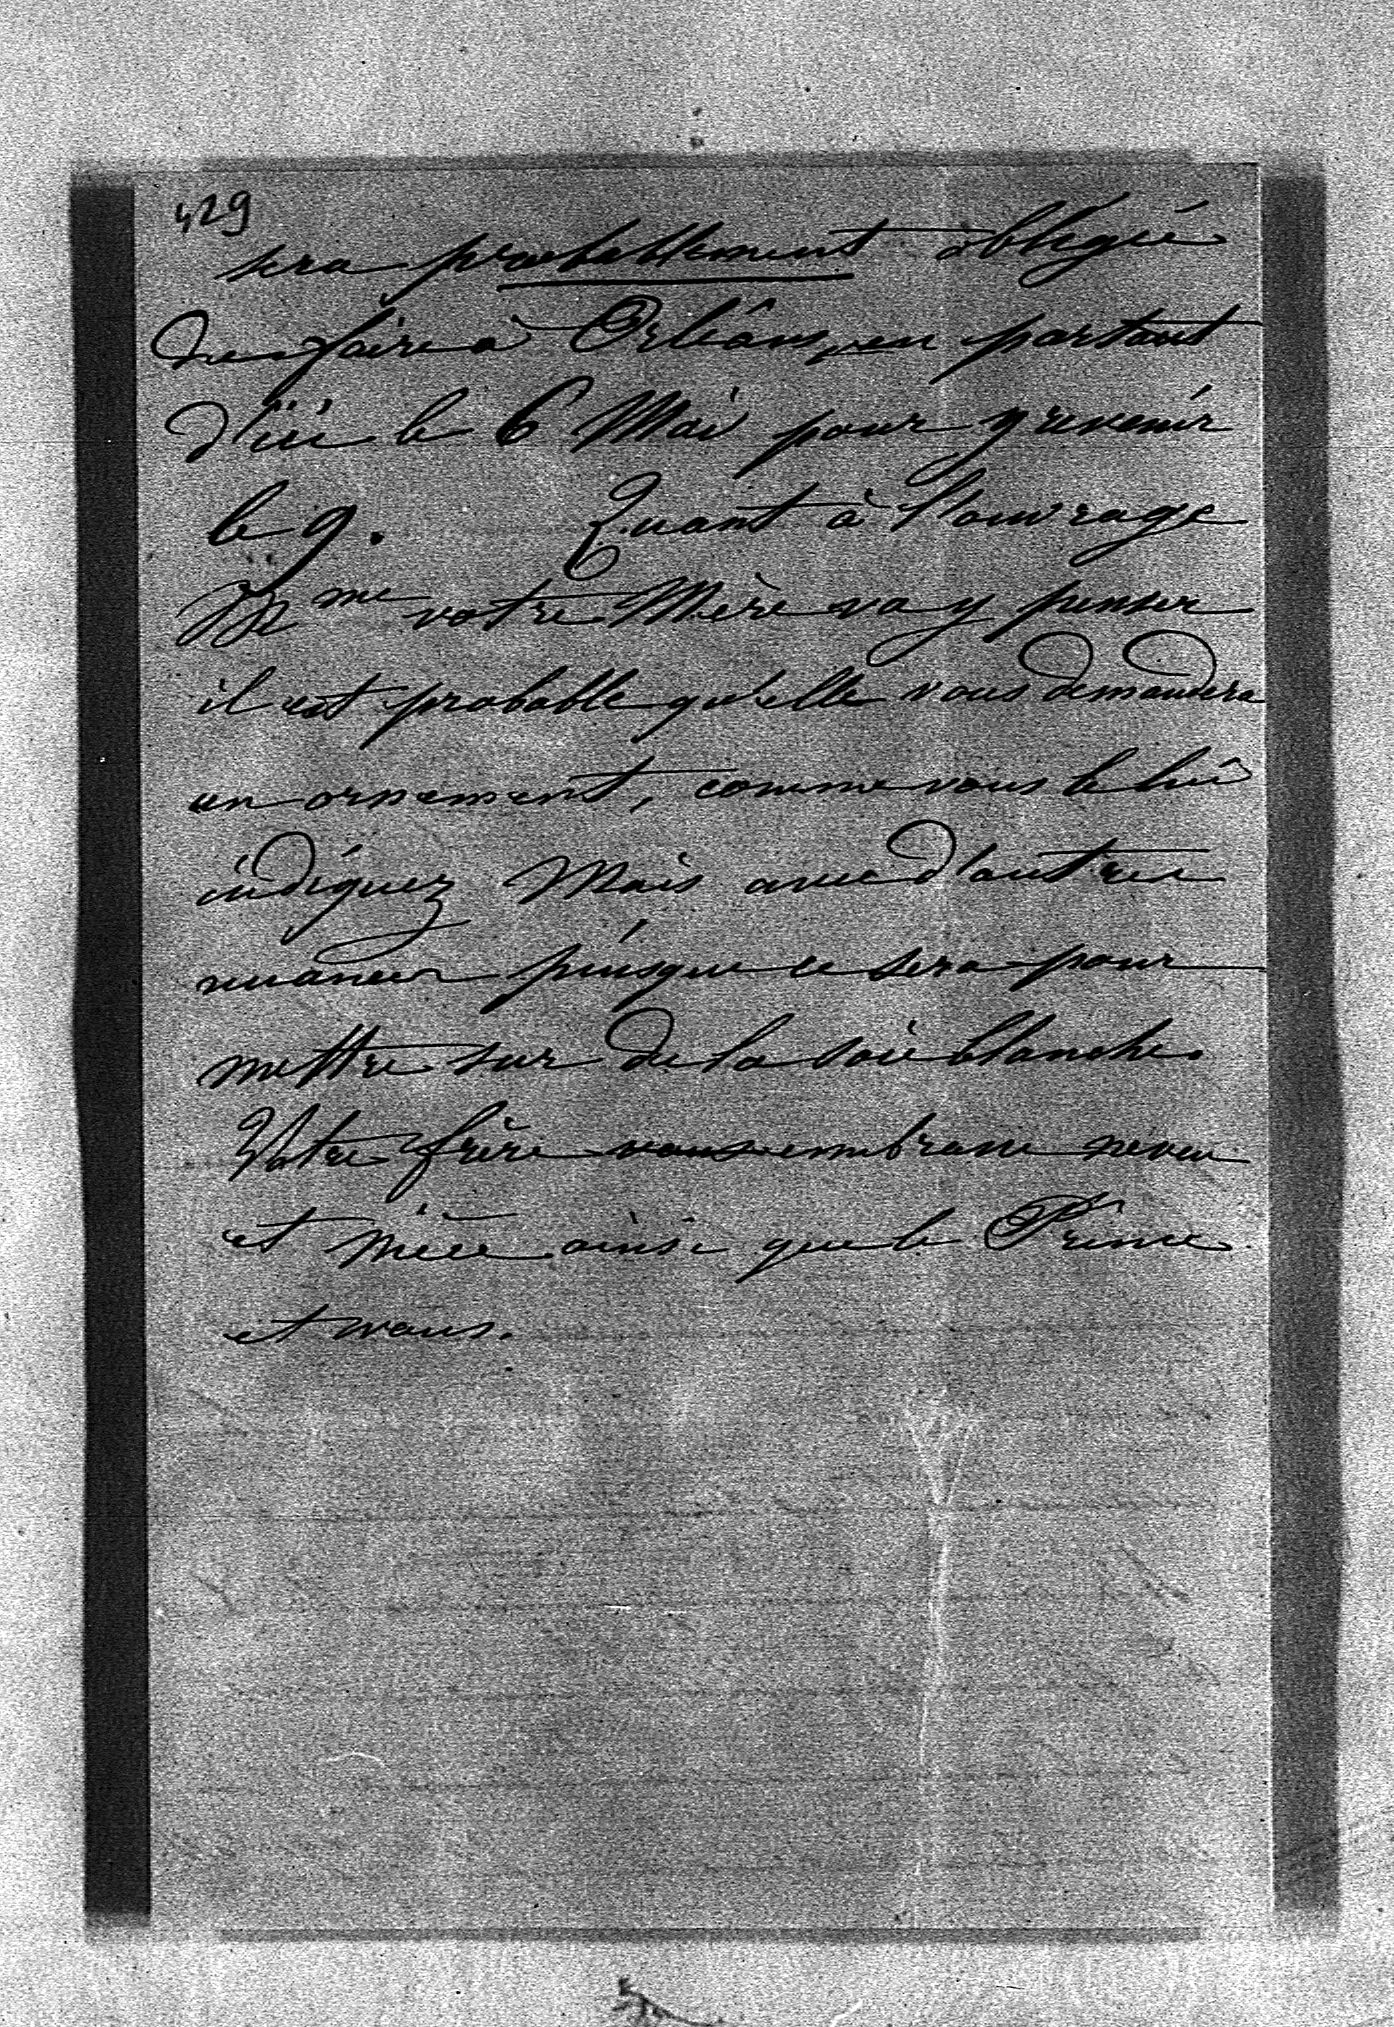 429
sera probablement obligié
de faire à Orléans, en partant
d'içi le 6 Mai pour y revenir
le 9. Quant à l'ouvrage
Mme votre Mère va y penser
il est probable qu'elle vous demandera
un ornement, comme vous le lui
indiquez Mais avec d'autres
nuances puisque ce sera pour
mettre sur de la soie blanche.
Votre frère vous embrasse neveu
et nièce ainsi que le Prince
et vous.